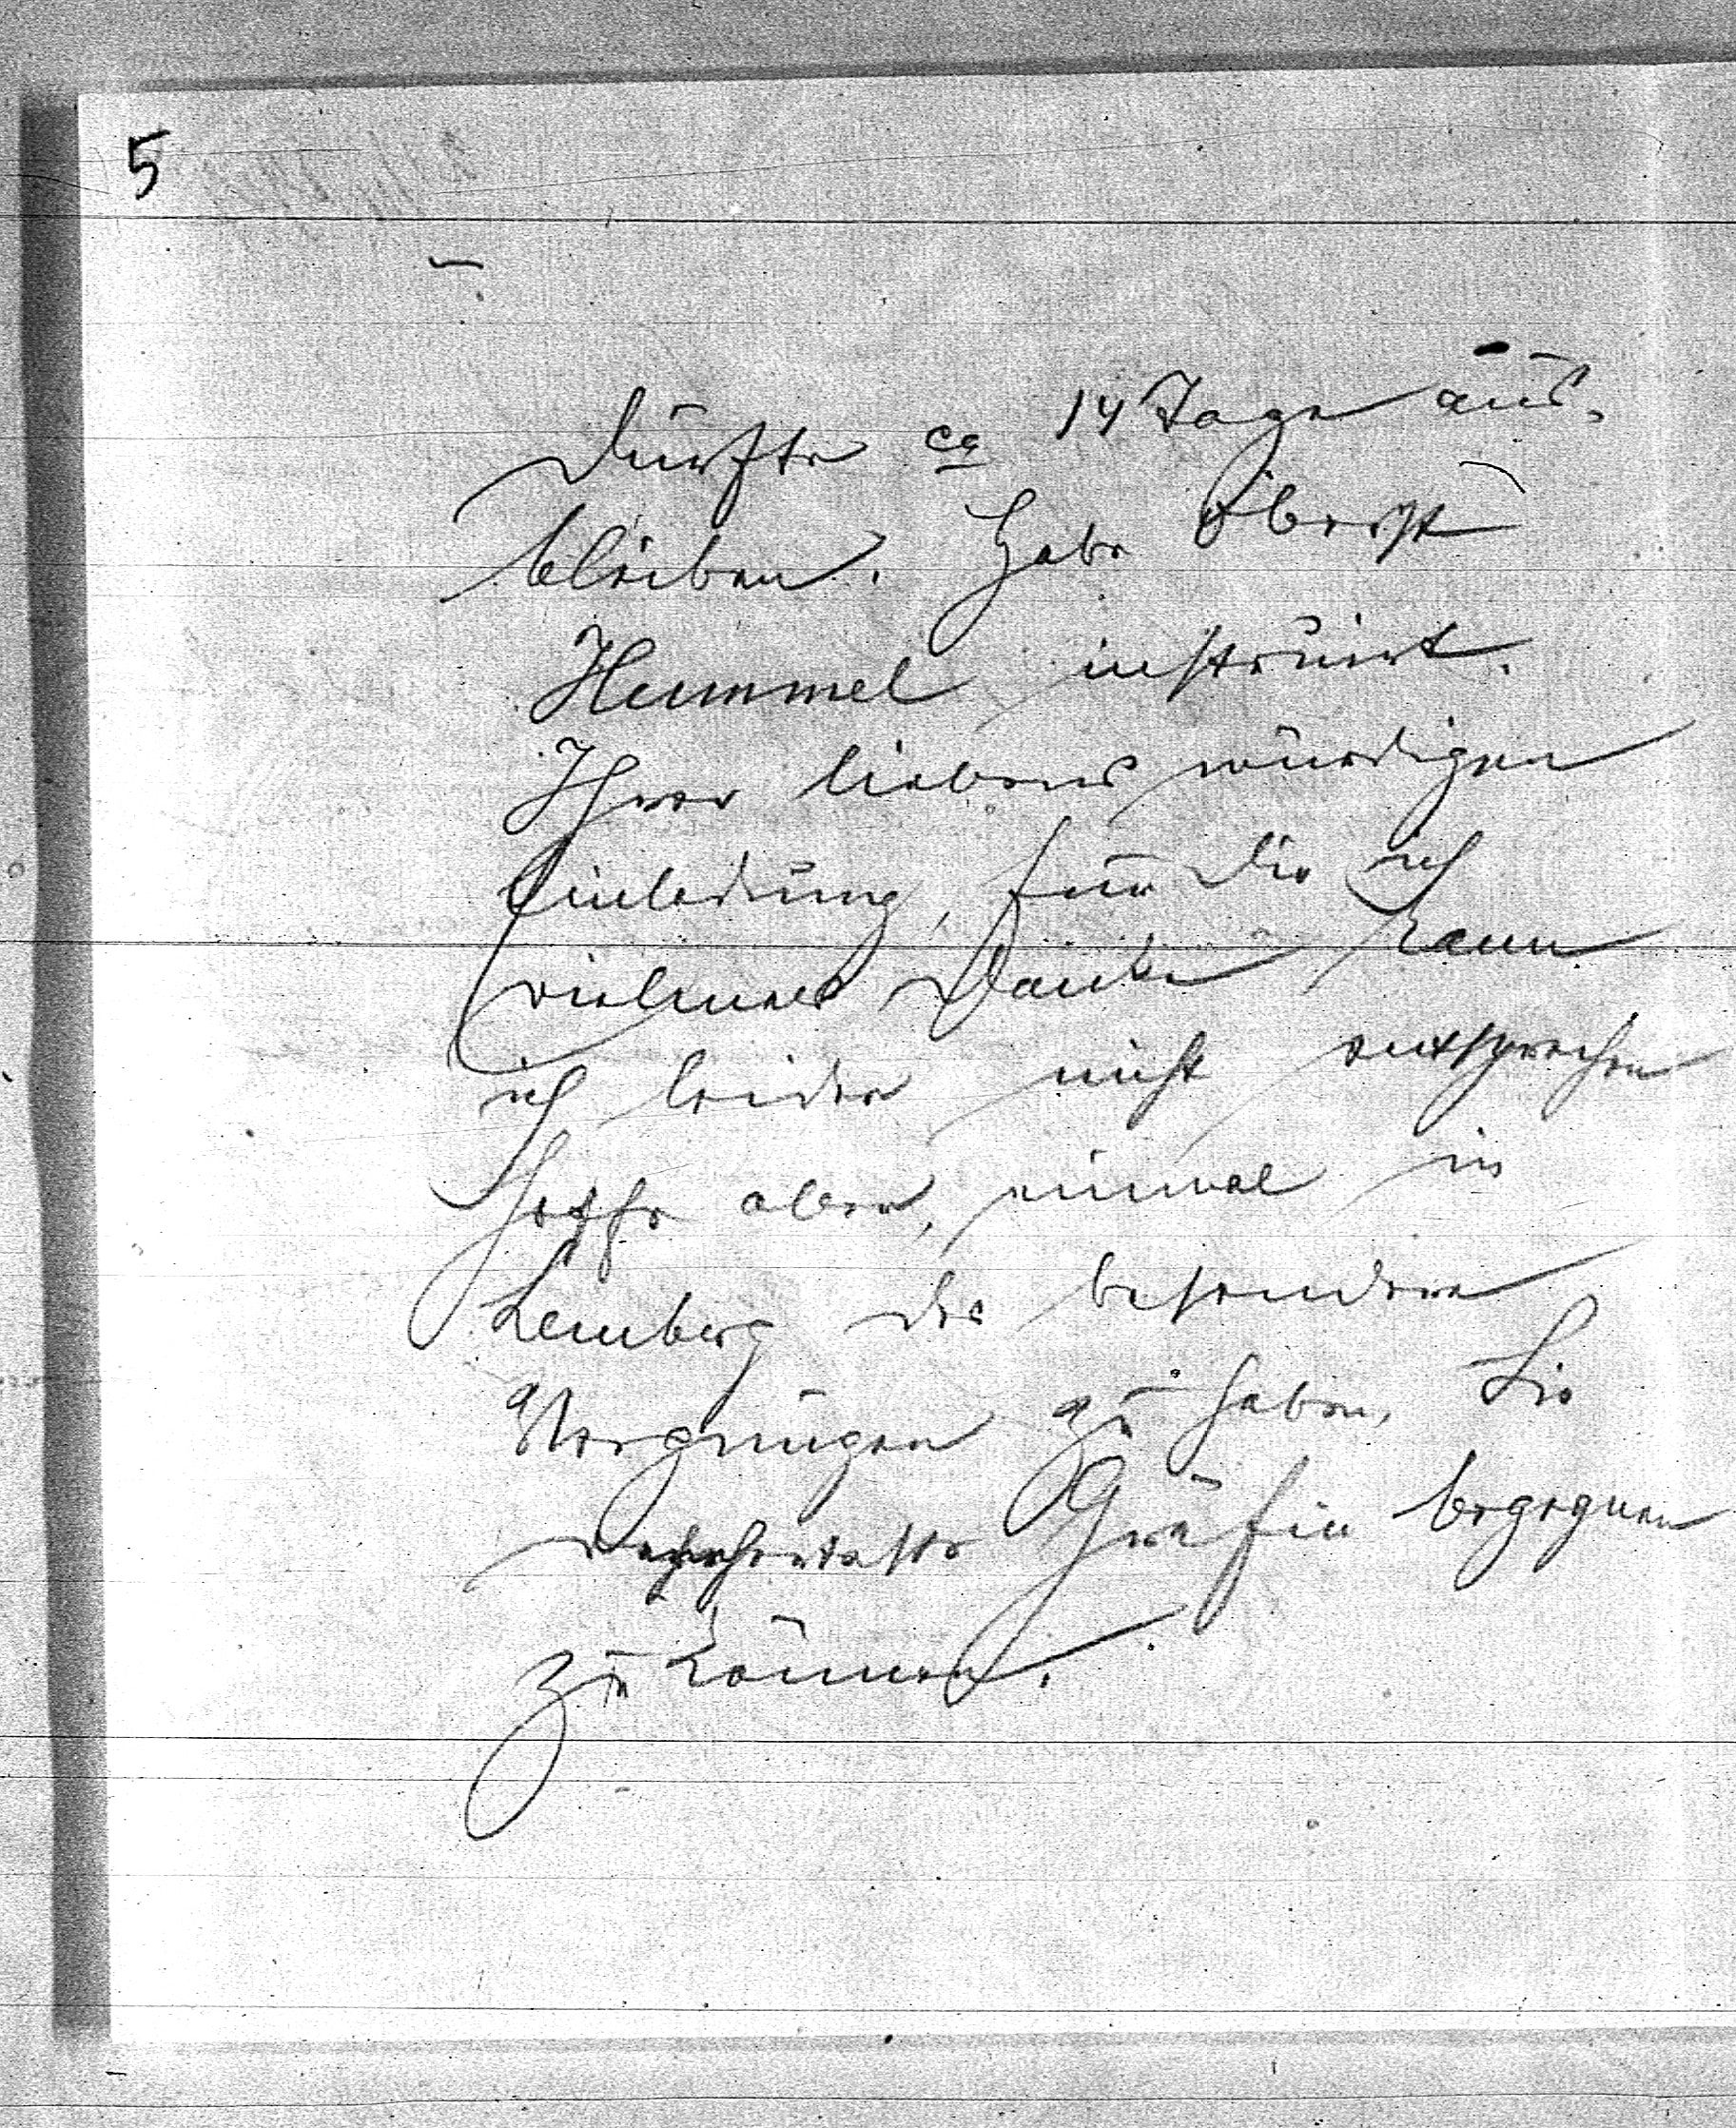 5
dürfte ca 14 Tage aus-
bleiben. Habe Oberst
Hummel instruirt.
Ihrer liebenswürdigen
Einladung, für die ich
vielmals danke kann
ich leider nicht entsprechen
hoffe aber, einmal in
Lemberg das besondere
Vergnügen zu haben, Sie
verehrteste Gräfin begegnen
zu können.